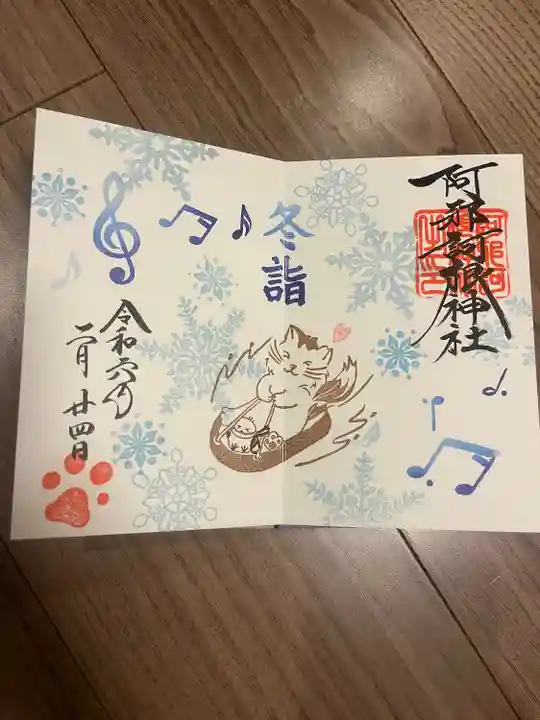 阿邪訶根神社
冬詣
令和六年
二月廿四日